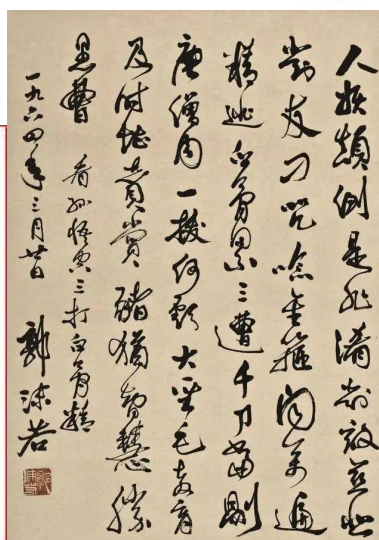 人妖顛倒是非淆對敵慈悲
對友刁咒唸金箍聞萬遍
精逃白骨累三遭千刀當剮
唐僧肉一拔何虧大聖毛教育
及時堪贊賞豬猶智慧勝
愚曹 看孫悟空三打白骨精
一九六四年三月廿日 郭沫若